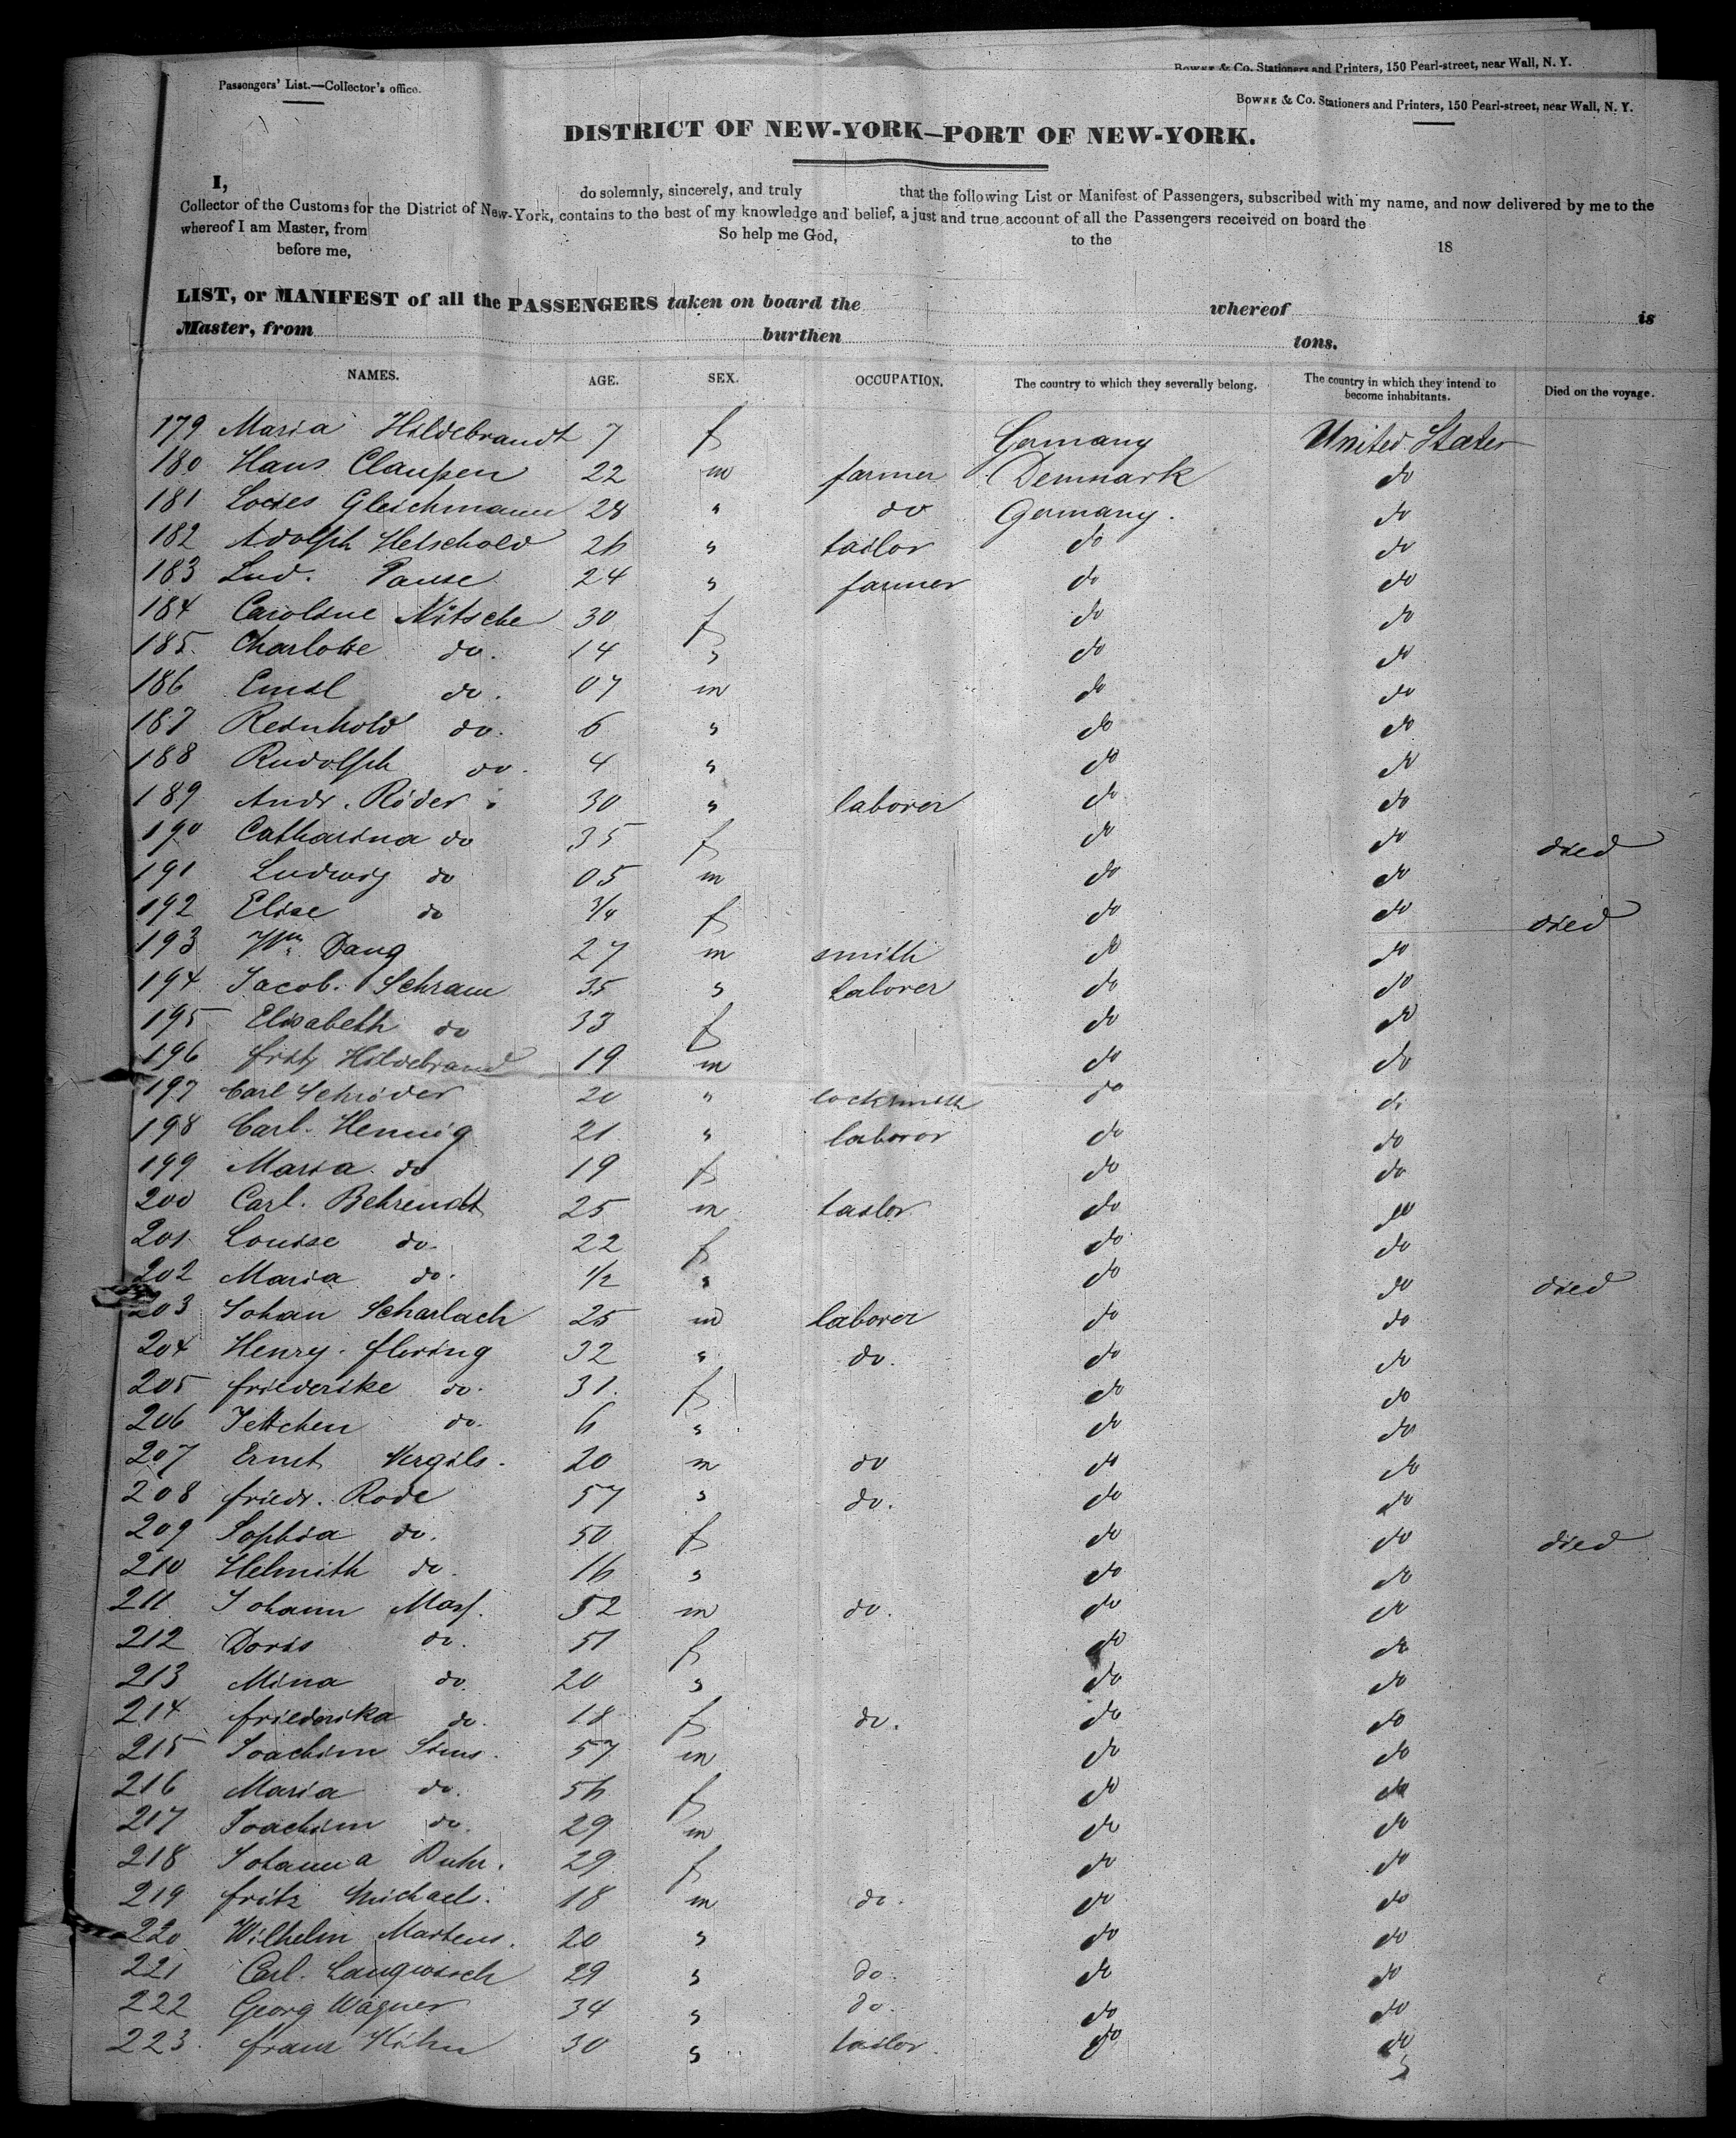 Bowne & Co. Stationers and Printers, 150 Pearl-street, near Wall, N. Y.
Passengers' List.—Collector's office.
Bowne & Co. Stationers and Printers, 150 Pearl-street, near Wall, N. Y.
DISTRICT OF NEW-YORK—PORT OF NEW-YORK.
I, do solemnly, sincerely, and truly that the following List or Manifest of Passengers, subscribed with my name, and now delivered by me to the
Collector of the Customs for the District of New-York, contains to the best of my knowledge and belief, a just and true account of all the Passengers received on board the
whereof I am Master, from So help me God, to the 18
before me,
LIST, or MANIFEST of all the PASSENGERS taken on board the whereof is
Master, from burthen tons.
NAMES. AGE. SEX. OCCUPATION. The country to which they severally belong. The country in which they intend to become inhabitants. Died on the voyage.
179 Maria Hildebrandt 7 f Germany United States
180 Hans Claussen 22 m farmer Denmark do
181 Louis Gleichmann 28 " do Germany. do
182 Adolph Hetschold 26 " tailor do do
183 Lud. Pause 24 " farmer do do
184 Caroline Nitsche 30 f do do
185. Charlotte do. 14 " do do
186 Emil do. 07 m do do
187 Reinhold do. 6 " do do
188 Rudolph do. 4 " do do
189 Andr. Röder 30 " laborer do do
190 Catharina do 35 f do do died
191 Ludwig do 05 m do do
192 Elise do 3/4 f do do died
193 Wm Dang 27 m smith do do
194 Jacob. Schram 35 " laborer do do
195 Elisabeth do 33 f do do
196 fritz Hildebrand 19 m do do
197 Carl Schröder 20 " locksmith do do
198 Carl. Hennig 21 " laboror do do
199 Maria do 19 f do do
200 Carl. Behrendt 25 m tailor do do
201 Louise do. 22 f do do
202 Maria do. 1/2 " do do died
203 Johan Scharlach 25 m laborer do do
204 Henry. flering 32 " do. do do
205 friederike do. 31. f do do
206 Jettchen do. 6 " do do
207 Ernst Vergils. 20 m do do do
208 friedr. Rode 57 " do. do do
209 Sophia do. 50 f do do died
210 Helmith do. 16 " do do
211 Johann Mass. 52 m do. do do
212 Doris do. 51 f do do
213 Mina do. 20 " do do
214 friederika do. 18 f do. do do
215 Joachim Sims. 57 m do do
216 Maria do. 56 f do do
217 Joachim do. 29 m do do
218 Johanna Duhr. 29 f do do
219 fritz Michaels. 18 m do. do do
220 Wilhelm Martens. 20 " do do
221 Carl. Langwisch 29 " do. do do
222 Georg Wagner 34 " do. do do
223. franz Kühn 30 " tailor. do do
"